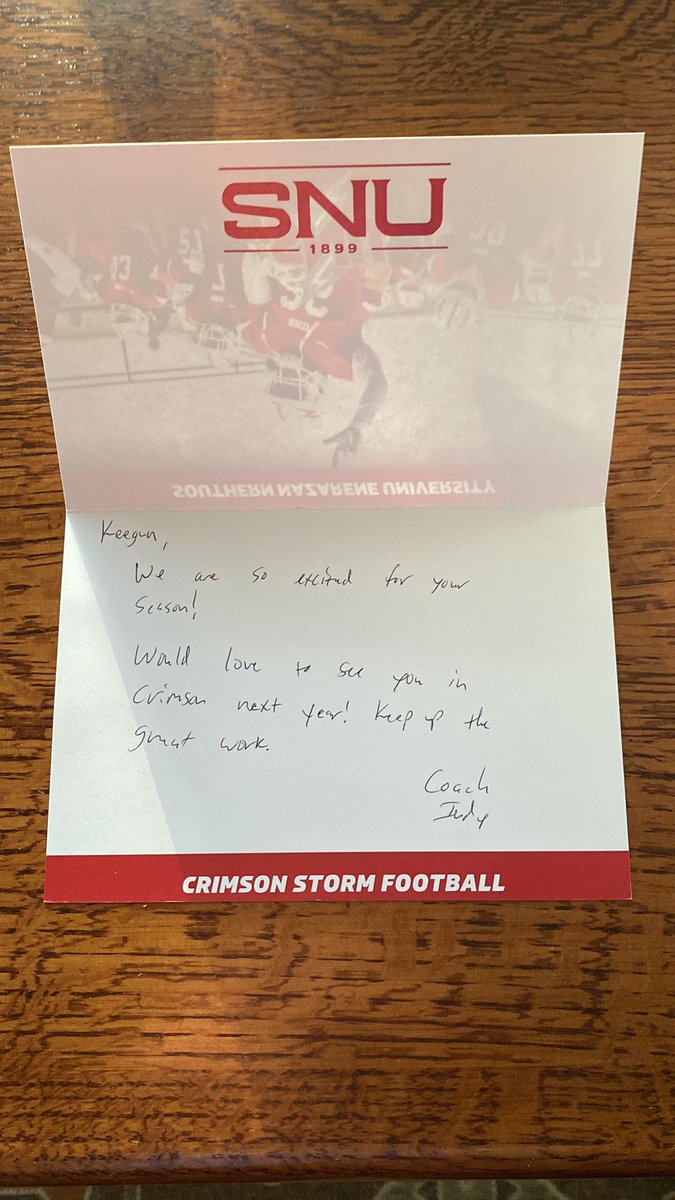 SNU
1899
SOUTHERN NAZARENE UNIVERSITY
Keegan,
We are so excited for your
season!
Would love to see you in
Crimson next year! Keep up the
great work.
Coach
Indy
CRIMSON STORM FOOTBALL